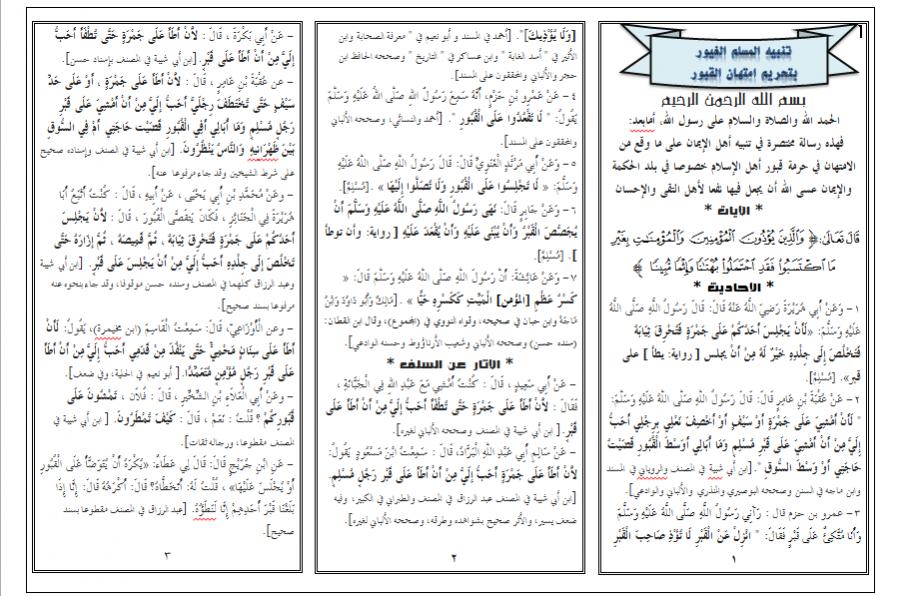 تنبيه المسلم الغيور
بتحريم امتهان القبور
بسم الله الرحمن الرحيم
الحمد لله والصلاة والسلام على رسول الله، أمابعد:
فهذه رسالة مختصرة في تنبيه أهل الإيمان على ما وقع من
الامتهان في حرمة قبور أهل الإسلام خصوصا في بلد الحكمة
والإيمان عسى الله أن يجعل فيها نفعا لأهل التقى والإحسان
* الآيات *
قَالَ تَعَالَى: ﴿ وَالَّذِينَ يُؤْذُونَ الْمُؤْمِنِينَ وَالْمُؤْمِنَاتِ بِغَيْرِ
مَا اكْتَسَبُوا فَقَدِ احْتَمَلُوا بُهْتَانًا وَإِثْمًا مُبِينًا ﴾
* الأحاديث *
١- وَعَنْ أَبِي هُرَيْرَةَ رَضِيَ اللهُ عَنْهُ قَالَ: قَالَ رَسُولُ اللهِ صَلَّى اللهُ
عَلَيْهِ وَسَلَّمَ: «لَأَنْ يَجْلِسَ أَحَدُكُمْ عَلَى جَمْرَةٍ فَتُحْرِقَ ثِيَابَهُ
فَتَخْلُصَ إِلَى جِلْدِهِ خَيْرٌ لَهُ مِنْ أَنْ يجلس [ رواية: يطأ ] على
قبر». [مُسْلِمٌ].
٢- وَعَنْ عُقْبَةَ بْنِ عَامِرٍ قَالَ: قَالَ رَسُولُ اللهِ صَلَّى اللهُ عَلَيْهِ وَسَلَّمَ:
" لَأَنْ أَمْشِيَ عَلَى جَمْرَةٍ أَوْ سَيْفٍ أَوْ أَخْصِفَ نَعْلِي بِرِجْلِي أَحَبُّ
إِلَيَّ مِنْ أَنْ أَمْشِيَ عَلَى قَبْرِ مُسْلِمٍ وَمَا أُبَالِي أَوَسَطَ الْقُبُورِ قَضَيْتُ
حَاجَتِي أَوْ وَسَطَ السُّوقِ ". [ابن أبي شيبة في المصنف والروياني في المسند
وابن ماجه في السنن وصححه البوصيري والمنذري والألباني والوادعي].
٣- عمرو بن حزم قال : رَآنِي رَسُولُ اللَّهِ صَلَّى اللَّهُ عَلَيْهِ وَسَلَّمَ
وَأَنَا مُتَّكِئٌ عَلَى قَبْرٍ فَقَالَ: " انْزِلْ عَنْ الْقَبْرِ لَا تُؤْذِ صَاحِبَ الْقَبْرِ
١
[وَلَا يُؤْذِيكَ]". [أحمد في المسند و أبو نعيم في " معرفة الصحابة وابن
الأثير في " أسد الغابة " وابن عساكر في " التاريخ " وصححه الحافظ ابن
حجر والألباني والمحققون على المسند].
٤- عَنْ عَمْرِو بْنِ حَزْمٍ، أَنَّهُ سَمِعَ رَسُولَ اللَّهِ صَلَّى اللَّهُ عَلَيْهِ وَسَلَّمَ
يَقُولُ: " لَا تَقْعُدُوا عَلَى الْقُبُورِ ". [أحمد والنسائي، وصححه الألباني
والمحققون على المسند].
٥- وَعَنْ أَبِي مَرْثَدٍ الْغَنَوِيِّ قَالَ: قَالَ رَسُولُ اللَّهِ صَلَّى اللَّهُ عَلَيْهِ
وَسَلَّمَ: « لَا تَجْلِسُوا عَلَى الْقُبُورِ وَلَا تُصَلُّوا إِلَيْهَا ». [مُسْلِمٌ].
٦- وَعَنْ جَابِرٍ قَالَ: نَهَى رَسُولُ اللَّهِ صَلَّى اللَّهُ عَلَيْهِ وَسَلَّمَ أَنْ
يُجَصَّصَ الْقَبْرُ وَأَنْ يُبْنَى عَلَيْهِ وَأَنْ يُقْعَدَ عَلَيْهِ [ رواية: وأن توطأ
]. [مُسْلِمٌ].
٧- وَعَنْ عَائِشَةَ: أَنَّ رَسُولَ اللَّهِ صَلَّى اللَّهُ عَلَيْهِ وَسَلَّمَ قَالَ: «
كَسْرُ عَظْمِ [المؤمن] الْمَيِّتِ كَكَسْرِهِ حَيًّا » . [مَالِكٌ وَأَبُو دَاوُدَ وَابْنُ
مَاجَهْ وابن حبان في صحيحه، وقواه النووي في (المجموع)، وقال ابن القطان:
(سنده حسن) وصححه الألباني وشعيب الأرناؤوط وحسنه الوادعي].
* الآثار عن السلف *
- عَنْ أَبِي سَعِيدٍ ، قَالَ : كُنْتُ أَمْشِي مَعَ عَبْدِ اللهِ فِي الْجَبَّانَةِ ،
فَقَالَ : لأَنْ أَطَأَ عَلَى جَمْرَةٍ حَتَّى تُطْفَأَ أَحَبُّ إِلَيَّ مِنْ أَنْ أَطَأَ عَلَى
قَبْرٍ. [ابن أبي شيبة في المصنف وصححه الألباني لغيره].
- عَنْ سَالِمٍ أَبِي عَبْدِ اللَّهِ الْبَرَّادِ، قَالَ : سَمِعْتُ ابْنَ مَسْعُودٍ يَقُولُ:
لَأَنْ أَطَأَ عَلَى جَمْرَةٍ أَحَبُّ إِلَيَّ مِنْ أَنْ أَطَأَ عَلَى قَبْرِ رَجُلٍ مُسْلِمٍ.
[ابن أبي شيبة في المصنف عبد الرزاق في المصنف والطبراني في الكبير، وفيه
ضعف يسير، والأثر صحيح بشواهده وطرقه، وصححه الألباني لغيره].
٢
- عَنْ أَبِي بَكْرَةَ ، قَالَ : لأَنْ أَطَأَ عَلَى جَمْرَةٍ حَتَّى تَطْفَأَ أَحَبُّ
إِلَيَّ مِنْ أَنْ أَطَأَ عَلَى قَبْرٍ. [ابن أبي شيبة في المصنف بإسناد حسن].
- عن عُقْبَةَ بْنِ عَامِرٍ ، قَالَ : لأَنْ أَطَأَ عَلَى جَمْرَةٍ ، أَوْ عَلَى حَدِّ
سَيْفٍ حَتَّى تَخْتَطِفَ رِجْلَيَّ أَحَبُّ إِلَيَّ مِنْ أَنْ أَمْشِيَ عَلَى قَبْرِ
رَجُلٍ مُسْلِمٍ وَمَا أُبَالِي أَفِي الْقُبُورِ قَضَيْتُ حَاجَتِي أَمْ فِي السُّوقِ
بَيْنَ ظَهْرَانِيهِ وَالنَّاسُ يَنْظُرُونَ. [ابن أبي شيبة في المصنف وإسناده صحيح
على شرط الشيخين وقد جاء مرفوعا عنه].
- وعَنْ مُحَمَّدِ بْنِ أَبِي يَحْيَى ، عَنْ أَبِيهِ ، قَالَ : كُنْتُ أَتَّبِعُ أَبَا
هُرَيْرَةَ فِي الْجَنَائِزِ ، فَكَانَ يَتَقَصَّى الْقُبُورَ ، قَالَ : لأَنْ يَجْلِسَ
أَحَدُكُمْ عَلَى جَمْرَةٍ فَتُحْرِقَ ثِيَابَهُ ، ثُمَّ قَمِيصَهُ ، ثُمَّ إِزَارَهُ حَتَّى
تَخْلُصَ إِلَى جِلْدِهِ أَحَبُّ إِلَيَّ مِنْ أَنْ يَجْلِسَ عَلَى قَبْرٍ. [ابن أبي شيبة
وعبد الرزاق كلاهما في المصنف وسنده حسن موقوفا، وقد جاء بنحوه عنه
مرفوعا بسند صحيح].
- وعن الْأَوْزَاعِيِّ، قَالَ: سَمِعْتُ الْقَاسِمَ (ابن مخيمرة)، يَقُولُ: لَأَنْ
أَطَأَ عَلَى سِنَانٍ مَحْمِيٍّ حَتَّى يَنْفُذَ مِنْ قَدَمِي أَحَبُّ إِلَيَّ مِنْ أَنْ أَطَأَ
عَلَى قَبْرِ رَجُلٍ مُؤْمِنٍ مُتَعَمِّدًا. [ أبو نعيم في الحلية، وفي ضعف].
- وعَنْ أَبِي الْعَلَاءِ بْنِ الشِّخِّيرِ ، قَالَ : قَالَ : فُلَانٌ ، تَمْشُونَ عَلَى
قُبُورِكُمْ ؟ قُلْتُ : نَعَمْ ، قَالَ : كَيْفَ تُمْطَرُونَ. [ ابن أبي شيبة في
المصنف مقطوعا، ورجاله ثقات].
- عَنِ ابْنِ جُرَيْجٍ قَالَ: قَالَ لِي عَطَاءٌ: «يُكْرَهُ أَنْ يُتَوَضَّأَ عَلَى الْقُبُورِ
أَوْ يُجْلَسَ عَلَيْهَا»، قُلْتُ لَهُ: أَتَخَطَّاهُ؟ قَالَ: أَكْرَهُهُ قَالَ: إِنَّا إِذًا
بَلَغْنَا قَبْرَ أَحَدِهِمْ إِنَّا لَنَطَؤُهُ. [عبد الرزاق في المصنف مقطوعا بسند
صحيح].
٣